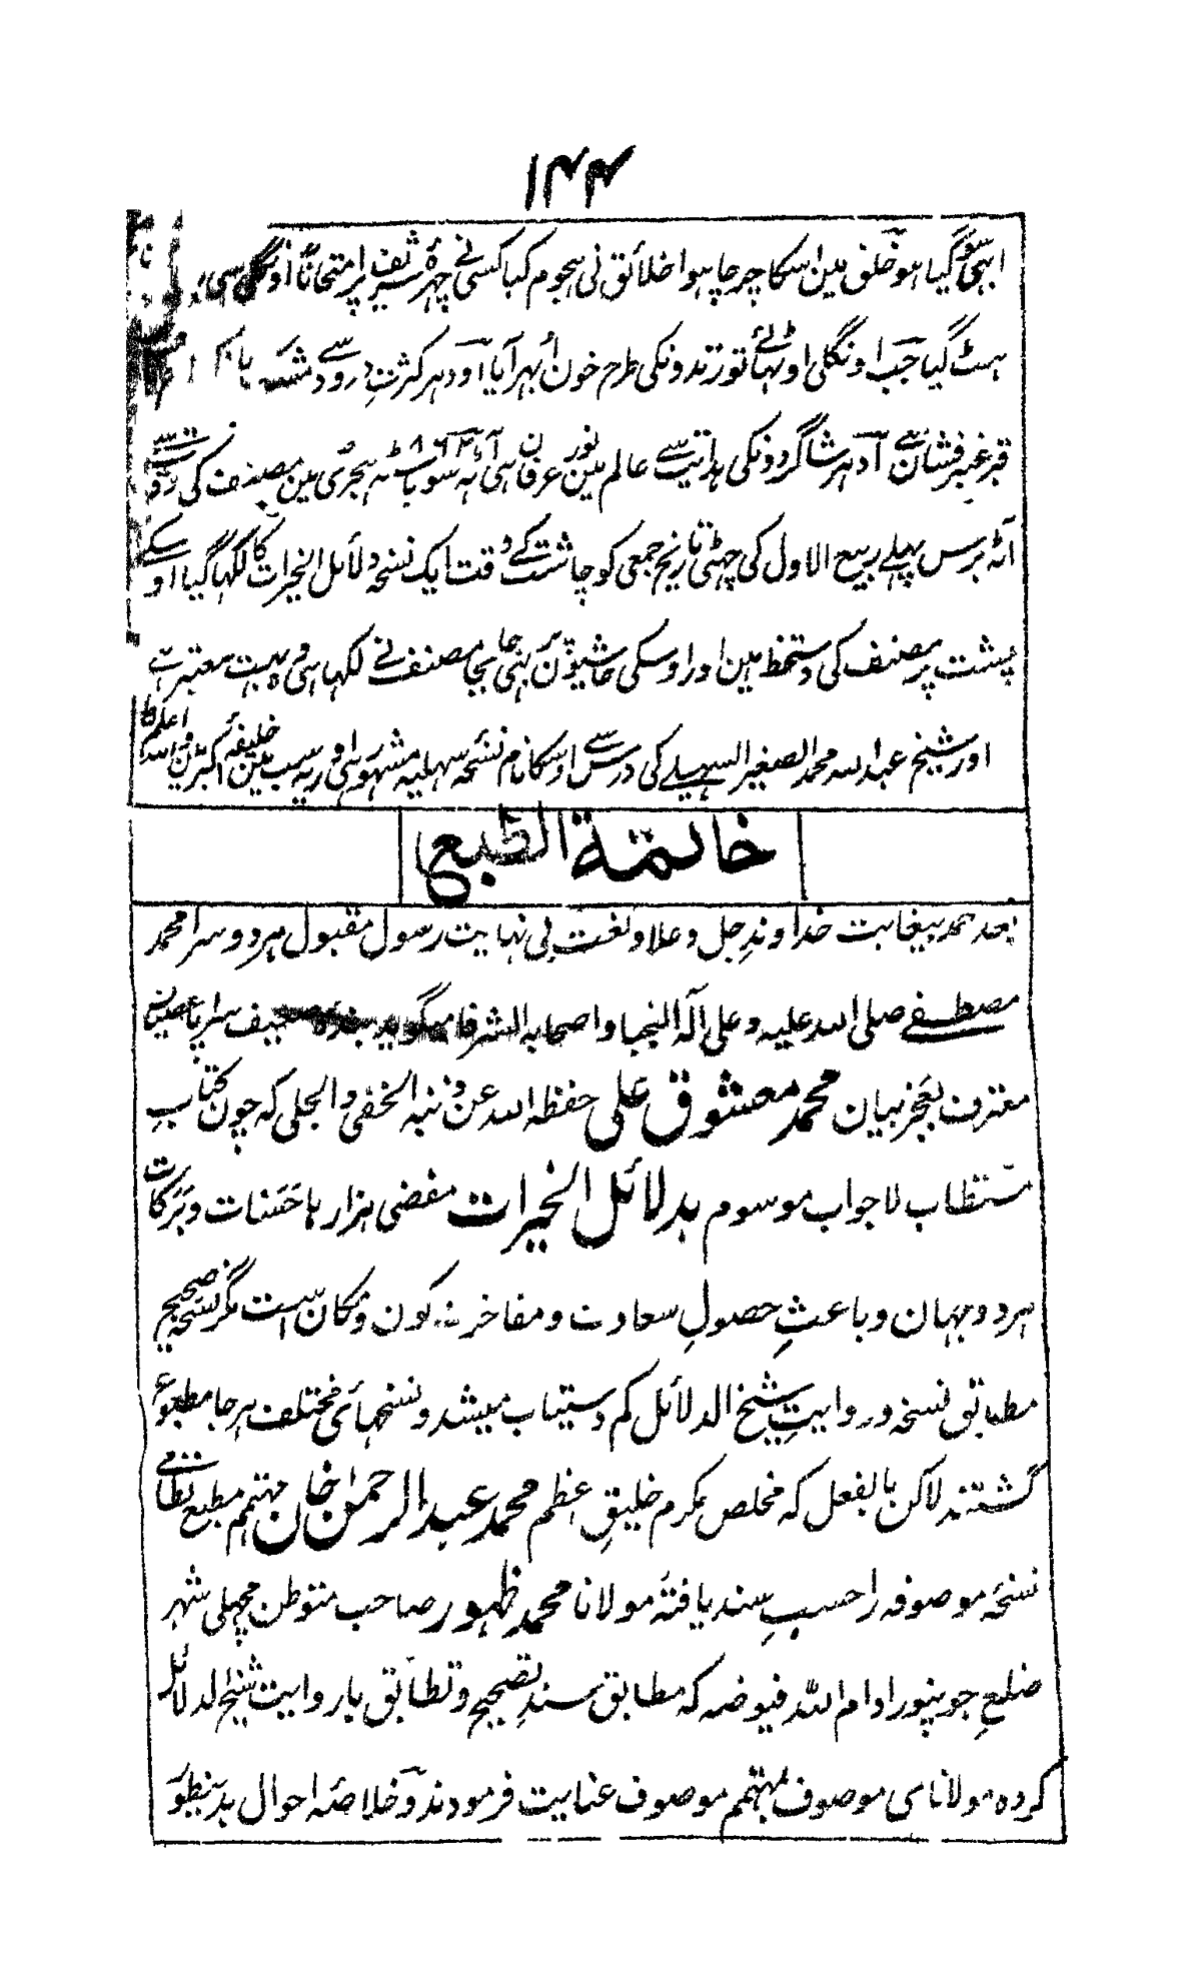 ۱۴۴
ابھی سوگیا ہو خلق مین اسکا چرچا ہوا خلائق نی ہجوم کیا کسی نے چہرۂ شریف پر امتحاناً اونگلی سی
ہٹ گیا جب اونگلی اوٹہائے تو زندونکی طرح خون اُبہر آیا اودہر کثرتِ درود سے مشک
قبر عنبر فشان ہے آدہر شاگردونکی ہدایت سے عالم مین نور عرفان ہی ۸۶۲ آٹہ سو باسٹہ ہجری مین مصنف کی
آٹہ برس پہلے ربیع الاول کی چہٹی تاریخ جمعی کو چاشت کے وقت ایک نسخہ دلائل الخیرات کا لکہا گیا اوسکے
پشت پر مصنف کی دستخط ہین اور اوسکی حاشیون پر بہی جابجا مصنف نے لکہا ہی وہ بہت معتبر ہے
اور شیخ عبدالله محمد الصغیر السہیلے کی درس سے اوسکا نام نسخہ سہیلیہ مشہور ہی اور یہ سب مین خلیفۂ اکبر ہین والله اعلم
خاتمة الطبع
بعد حمد بیغایت خداوند جل وعلا و نعت بی نہایت رسول مقبول ہردوسرا محمد
مصطفے صلی الله علیہ وعلی آلہ النجبا واصحابہ الشرفا میگوید بندۂ نحیف سراپا عصیان
معترف بعجز بیان محمد معشوق علی حفظہ الله عن ذنبہ الخفی والجلی کہ چون کتاب
مستطاب لاجواب موسوم بدلائل الخیرات مفضی ہزارہا حسنات وبرکات
ہردوجہان وباعثِ حصولِ سعادت ومفاخر کون ومکان ست مگر نسخہ صحیح
مطابق نسخہ وروایتِ شیخ الدلائل کم دستیاب میشد و نسخہای مختلف ہرجا مطبوع
گشتند لاکن بالفعل کہ مخلص مکرم خلیقِ اعظم محمد عبدالرحمن خان مہتمم مطبع نظامے
نسخۂ موصوفہ را حسبِ سند یافتۂ مولانا محمد ظہور صاحب متوطن مچہلی شہر
ضلعِ جونپور ادام الله فیوضہ کہ مطابق سندِ تصحیح وتطابق باروایت شیخ الدلائل
کردہ مولانای موصوف بمہتمم موصوف عنایت فرمودند وخلاصۂ احوال بدینطور